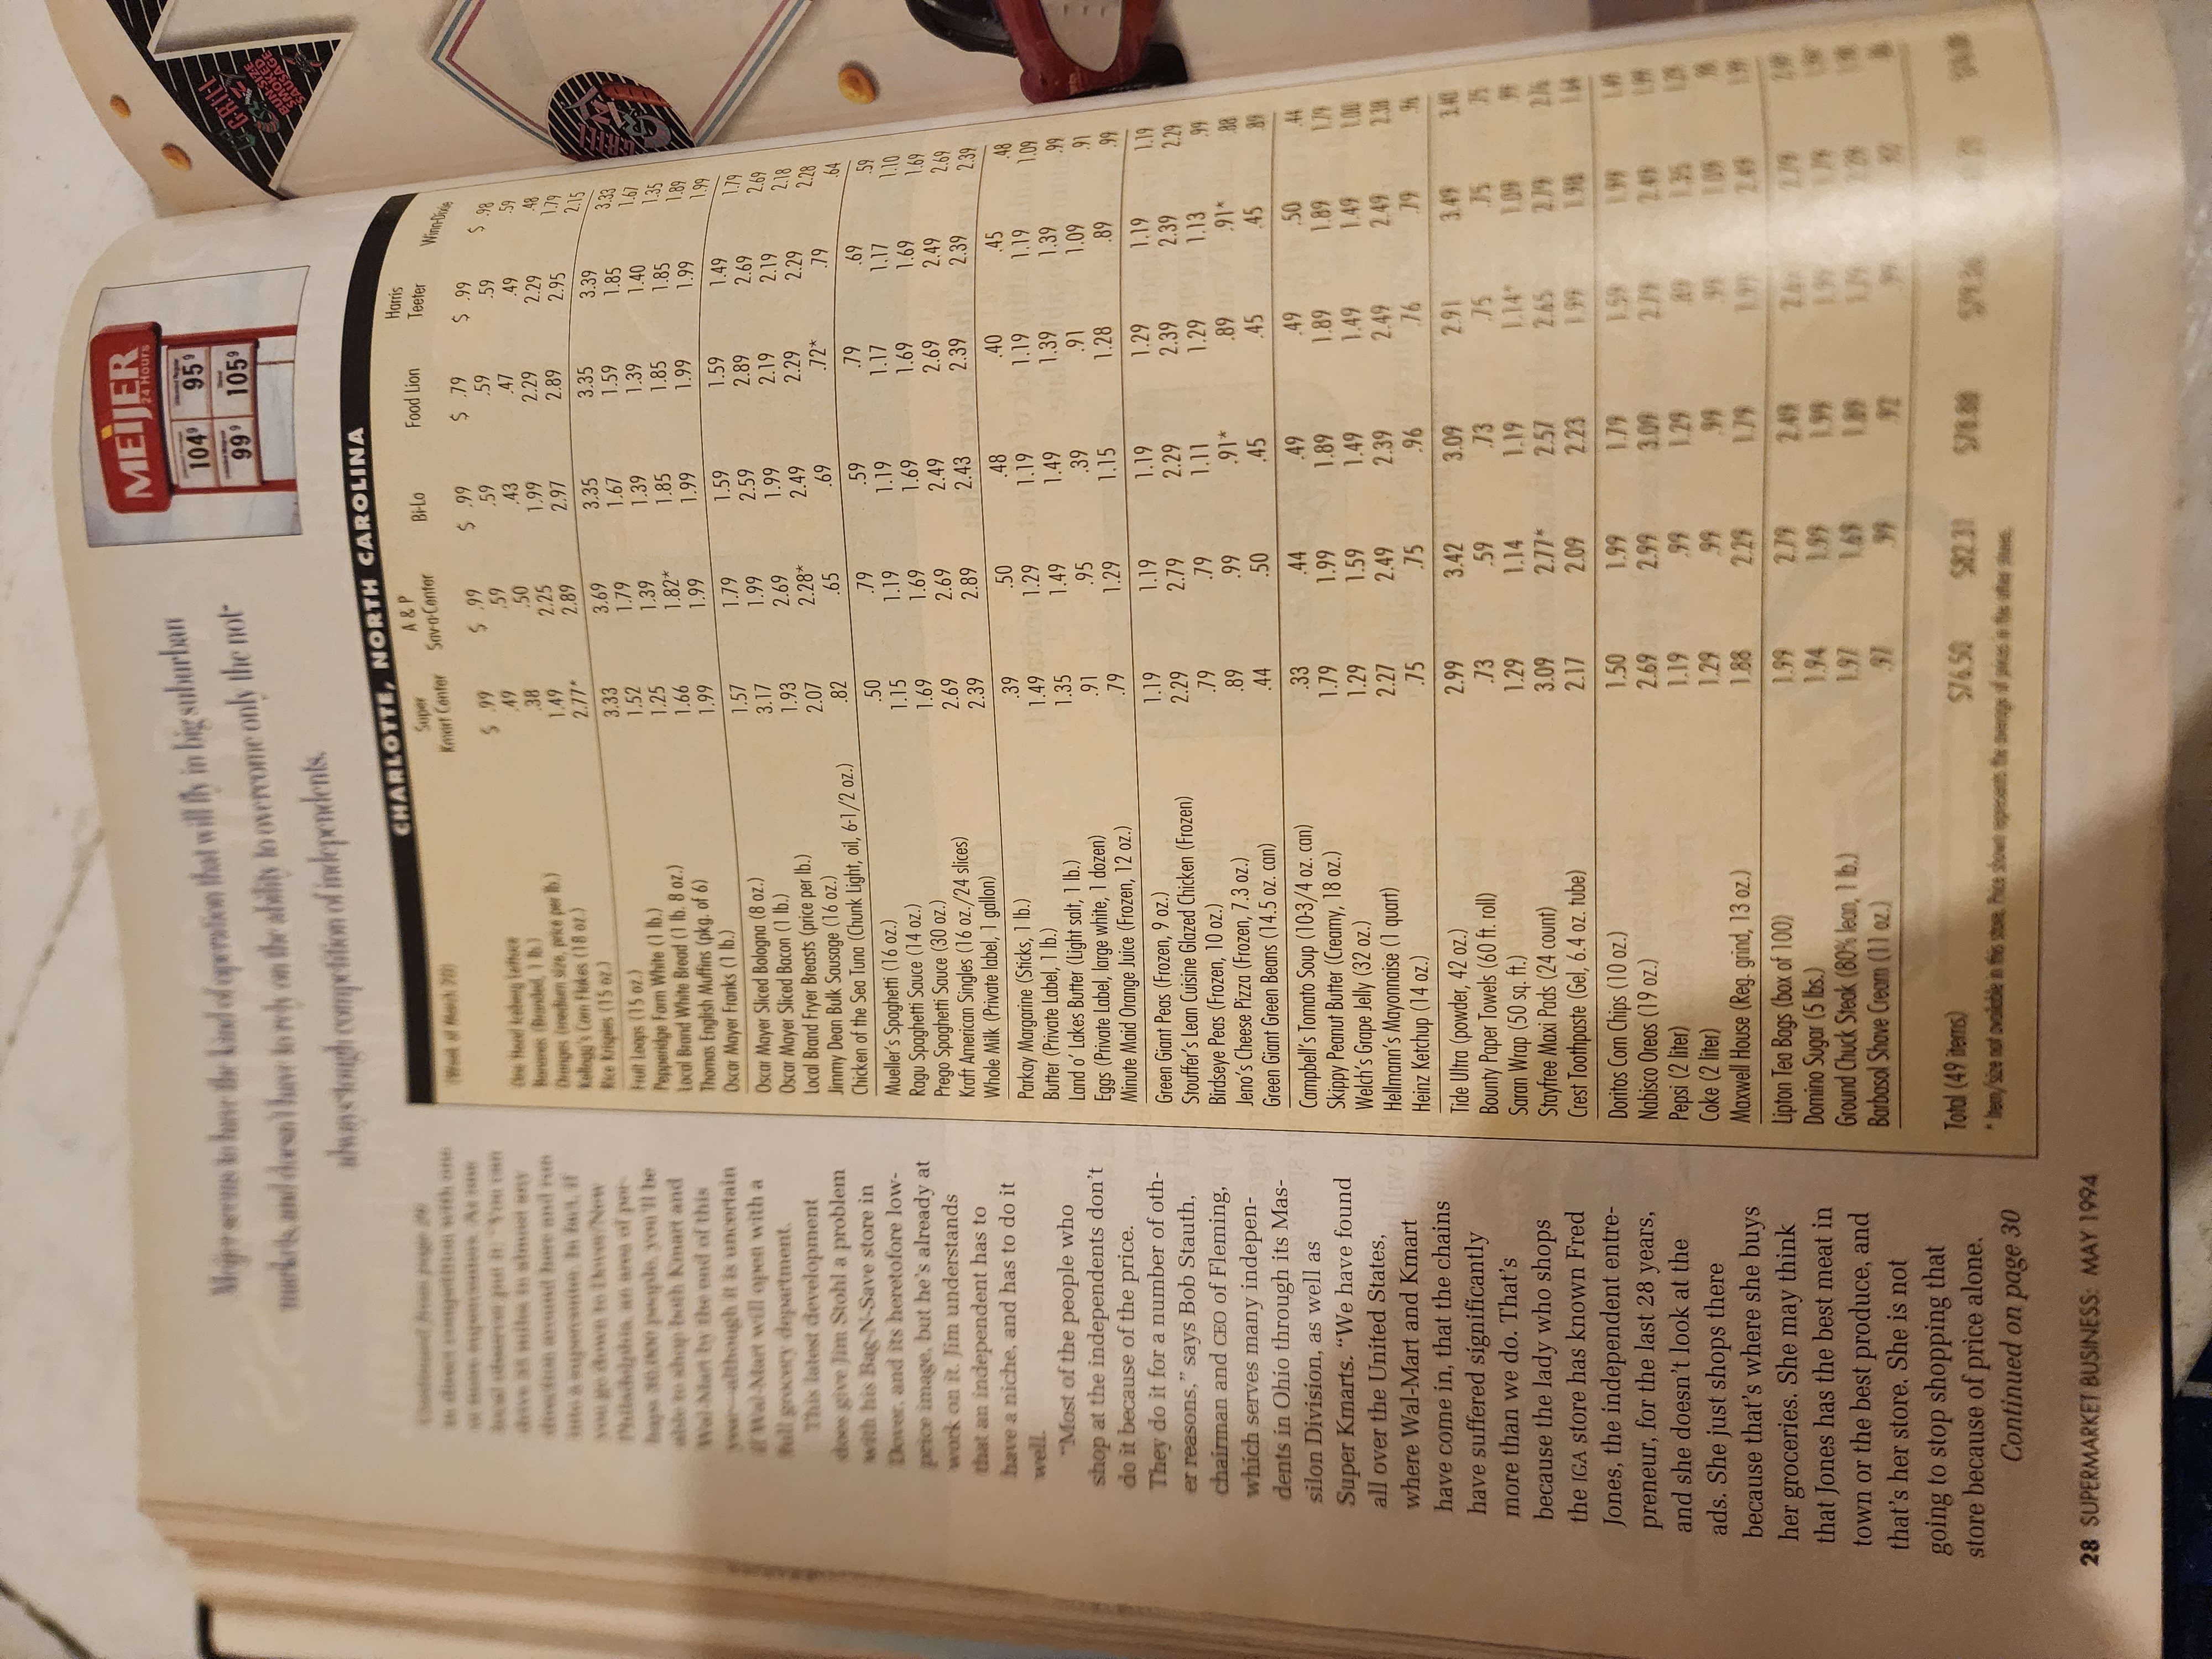 Meijer seems to have the kind of operation that will fly in big suburban
markets, and doesn't have to rely on the ability to overcome only the not-
always-tough competition of independents.
MEIJER
24 HOURS
104⁹ 95⁹
99⁹ 105⁹
Continued from page 26
in direct competition with one
or more supercenters. As one
local observer put it, "You can
drive 25 miles in almost any
direction around here and run
into a supercenter. In fact, if
you go down to Dover/New
Philadelphia, an area of per-
haps 30,000 people, you'll be
able to shop both Kmart and
Wal-Mart by the end of this
year—although it is uncertain
if Wal-Mart will open with a
full grocery department.
This latest development
does give Jim Stohl a problem
with his Bag-N-Save store in
Dover, and its heretofore low-
price image, but he's already at
work on it. Jim understands
that an independent has to
have a niche, and has to do it
well.
"Most of the people who
shop at the independents don't
do it because of the price.
They do it for a number of oth-
er reasons," says Bob Stauth,
chairman and CEO of Fleming,
which serves many indepen-
dents in Ohio through its Mas-
silon Division, as well as
Super Kmarts. "We have found
all over the United States,
where Wal-Mart and Kmart
have come in, that the chains
have suffered significantly
more than we do. That's
because the lady who shops
the IGA store has known Fred
Jones, the independent entre-
preneur, for the last 28 years,
and she doesn't look at the
ads. She just shops there
because that's where she buys
her groceries. She may think
that Jones has the best meat in
town or the best produce, and
that's her store. She is not
going to stop shopping that
store because of price alone.
Continued on page 30
CHARLOTTE, NORTH CAROLINA
(Week of March 20) Super Kmart Center A & P Sav-a-Center Bi-Lo Food Lion Harris Teeter Winn-Dixie
One Head Iceberg Lettuce $ .99 $ .99 $ .99 $ .79 $ .99 $ .98
Bananas (Branded, 1 lb.) .49 .59 .59 .59 .59 .59
Oranges (medium size, price per lb.) .38 .50 .43 .47 .49 .48
Kellogg's Corn Flakes (18 oz.) 1.49 2.25 1.99 2.29 2.29 1.79
Rice Krispies (15 oz.) 2.77* 2.89 2.97 2.89 2.95 2.15
Fruit Loops (15 oz.) 3.33 3.69 3.35 3.35 3.39 3.33
Pepperidge Farm White (1 lb.) 1.52 1.79 1.67 1.59 1.85 1.67
Local Brand White Bread (1 lb. 8 oz.) 1.25 1.39 1.39 1.39 1.40 1.35
Thomas English Muffins (pkg. of 6) 1.66 1.82* 1.85 1.85 1.85 1.89
Oscar Mayer Franks (1 lb.) 1.99 1.99 1.99 1.99 1.99 1.99
Oscar Mayer Sliced Bologna (8 oz.) 1.57 1.79 1.59 1.59 1.49 1.79
Oscar Mayer Sliced Bacon (1 lb.) 3.17 1.99 2.59 2.89 2.69 2.69
Local Brand Fryer Breasts (price per lb.) 1.93 2.69 1.99 2.19 2.19 2.18
Jimmy Dean Bulk Sausage (16 oz.) 2.07 2.28* 2.49 2.29 2.29 2.28
Chicken of the Sea Tuna (Chunk Light, oil, 6-1/2 oz.) .82 .65 .69 .72* .79 .64
Mueller's Spaghetti (16 oz.) .50 .79 .59 .79 .69 .59
Ragu Spaghetti Sauce (14 oz.) 1.15 1.19 1.19 1.17 1.17 1.10
Prego Spaghetti Sauce (30 oz.) 1.69 1.69 1.69 1.69 1.69 1.69
Kraft American Singles (16 oz./24 slices) 2.69 2.69 2.49 2.69 2.49 2.69
Whole Milk (Private label, 1 gallon) 2.39 2.89 2.43 2.39 2.39 2.39
Parkay Margarine (Sticks, 1 lb.) .39 .50 .48 .40 .45 .48
Butter (Private Label, 1 lb.) 1.49 1.29 1.19 1.19 1.19 1.09
Land o' Lakes Butter (Light salt, 1 lb.) 1.35 1.49 1.49 1.39 1.39 .99
Eggs (Private Label, large white, 1 dozen) .91 .95 .39 .91 1.09 .91
Minute Maid Orange Juice (Frozen, 12 oz.) .79 1.29 1.15 1.28 .89 .99
Green Giant Peas (Frozen, 9 oz.) 1.19 1.19 1.19 1.29 1.19 1.19
Stouffer's Lean Cuisine Glazed Chicken (Frozen) 2.29 2.79 2.29 2.39 2.39 2.29
Birdseye Peas (Frozen, 10 oz.) .79 .79 1.11 1.29 1.13 .99
Jeno's Cheese Pizza (Frozen, 7.3 oz.) .89 .99 .91* .89 .91* .88
Green Giant Green Beans (14.5 oz. can) .44 .50 .45 .45 .45 .89
Campbell's Tomato Soup (10-3/4 oz. can) .33 .44 .49 .49 .50 .44
Skippy Peanut Butter (Creamy, 18 oz.) 1.79 1.99 1.89 1.89 1.89 1.79
Welch's Grape Jelly (32 oz.) 1.29 1.59 1.49 1.49 1.49 1.00
Hellmann's Mayonnaise (1 quart) 2.27 2.49 2.39 2.49 2.49 2.38
Heinz Ketchup (14 oz.) .75 .75 .96 .76 .79 .96
Tide Ultra (powder, 42 oz.) 2.99 3.42 3.09 2.91 3.49 3.40
Bounty Paper Towels (60 ft. roll) .73 .59 .73 .75 .75 .75
Saran Wrap (50 sq. ft.) 1.29 1.14 1.19 1.14* 1.09 .99
Stayfree Maxi Pads (24 count) 3.09 2.77* 2.57 2.65 2.79 2.76
Crest Toothpaste (Gel, 6.4 oz. tube) 2.17 2.09 2.23 1.99 1.98 1.64
Doritos Corn Chips (10 oz.) 1.50 1.99 1.79 1.59 1.99
Nabisco Oreos (19 oz.) 2.69 2.99 3.09 2.79 2.49
Pepsi (2 liter) 1.19 .99 1.29 .89 1.35
Coke (2 liter) 1.29 .99 .99 .99 1.09
Maxwell House (Reg. grind, 13 oz.) 1.88 2.29 1.79 2.49
Lipton Tea Bags (box of 100) 1.99 2.79 2.49 2.79
Domino Sugar (5 lbs.) 1.94 1.99 1.99 1.79
Ground Chuck Steak (80% lean, 1 lb.) 1.97 1.69 1.89 2.09
Barbasol Shave Cream (11 oz.) .97 .99 .92 .92
Total (49 items) $76.50 $82.31 $78.88
* Item/size not available in this store. Price shown represents the average of prices in the other stores.
28 SUPERMARKET BUSINESS: MAY 1994
G·R·I·L·L
BUN-SIZE
SMOKED
SAUSAGE